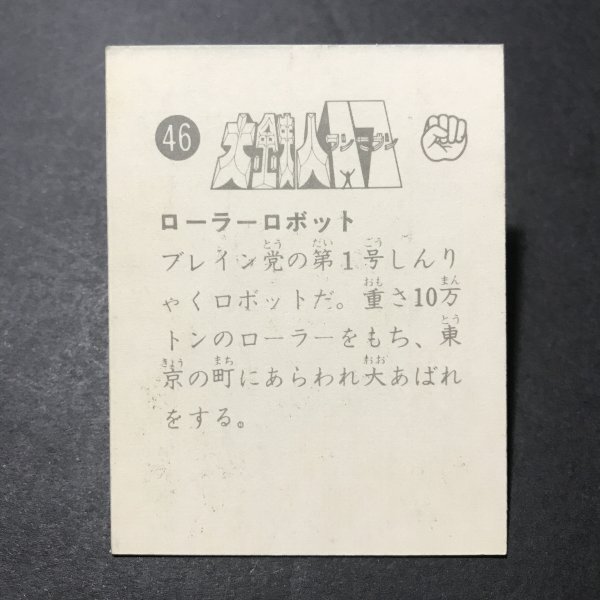 46
大鉄人17
ワンセブン
ローラーロボット
ブレイン党の第1号しんり
ゃくロボットだ。重さ10万
トンのローラーをもち、東
京の町にあらわれ大あばれ
をする。